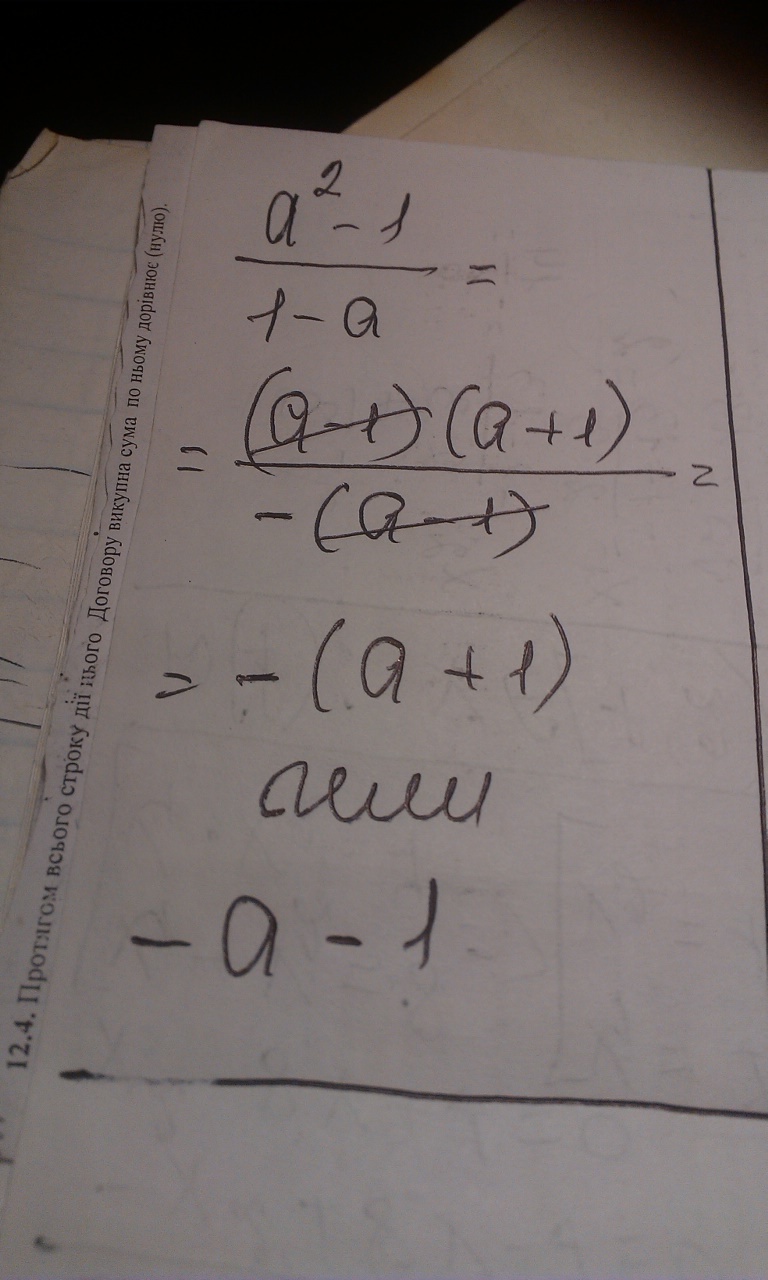 12.4. Протягом всього строку дії цього Договору викупна сума по ньому дорівнює (нулю).
a² - 1
1 - a =
= (a - 1) (a + 1)
- (a - 1) =
= - (a + 1)
или
- a - 1